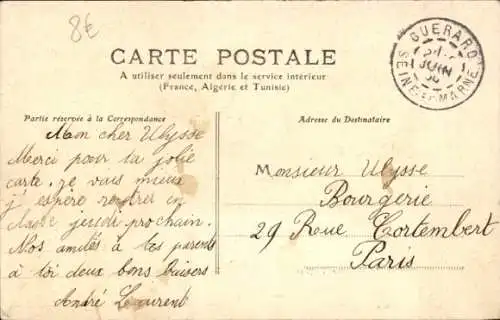 8€
CARTE POSTALE
A utiliser seulement dans le service intérieur
(France, Algérie et Tunisie)
GUERARD
JUIN
SEINE-ET-MARNE
Partie réservée à la Correspondance
Adresse du Destinataire
Mon cher Ulysse
Merci pour ta jolie
carte. je vais mieux
j'espère rentrer en
classe jeudi prochain.
Mes amitiés à tes parents
à toi deux bons baisers
André Laurent
Monsieur Ulysse
Bourgerie
29 Rue Cortembert
Paris